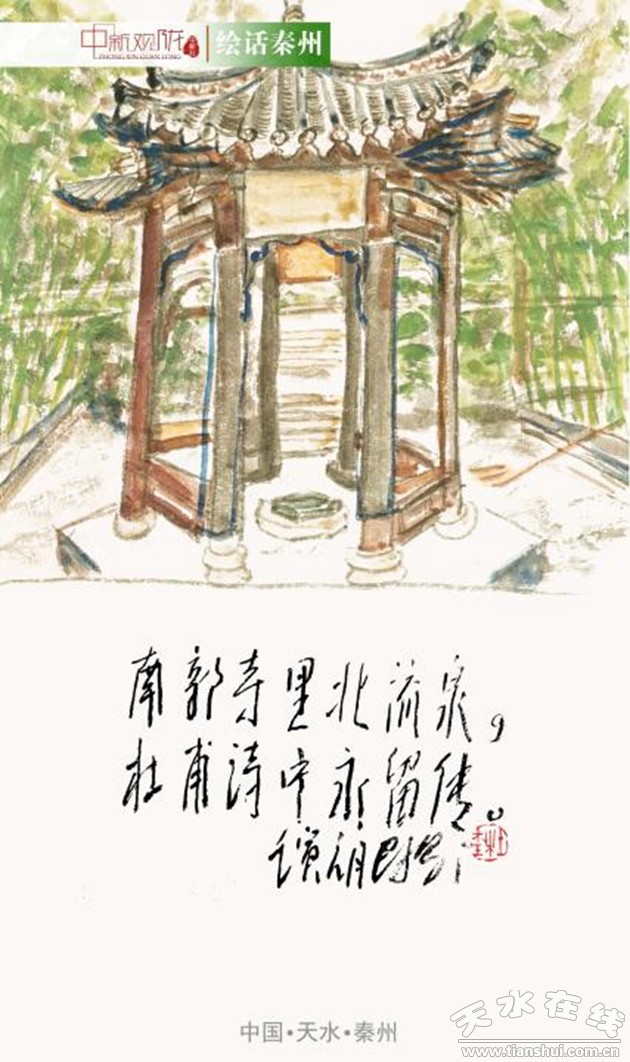 中新观陇
ZHONG XIN GUAN LONG
绘话秦州
南郭寺里北流泉，
杜甫诗中永留传。
中国·天水·秦州
天水在线
www.tianshui.com.cn